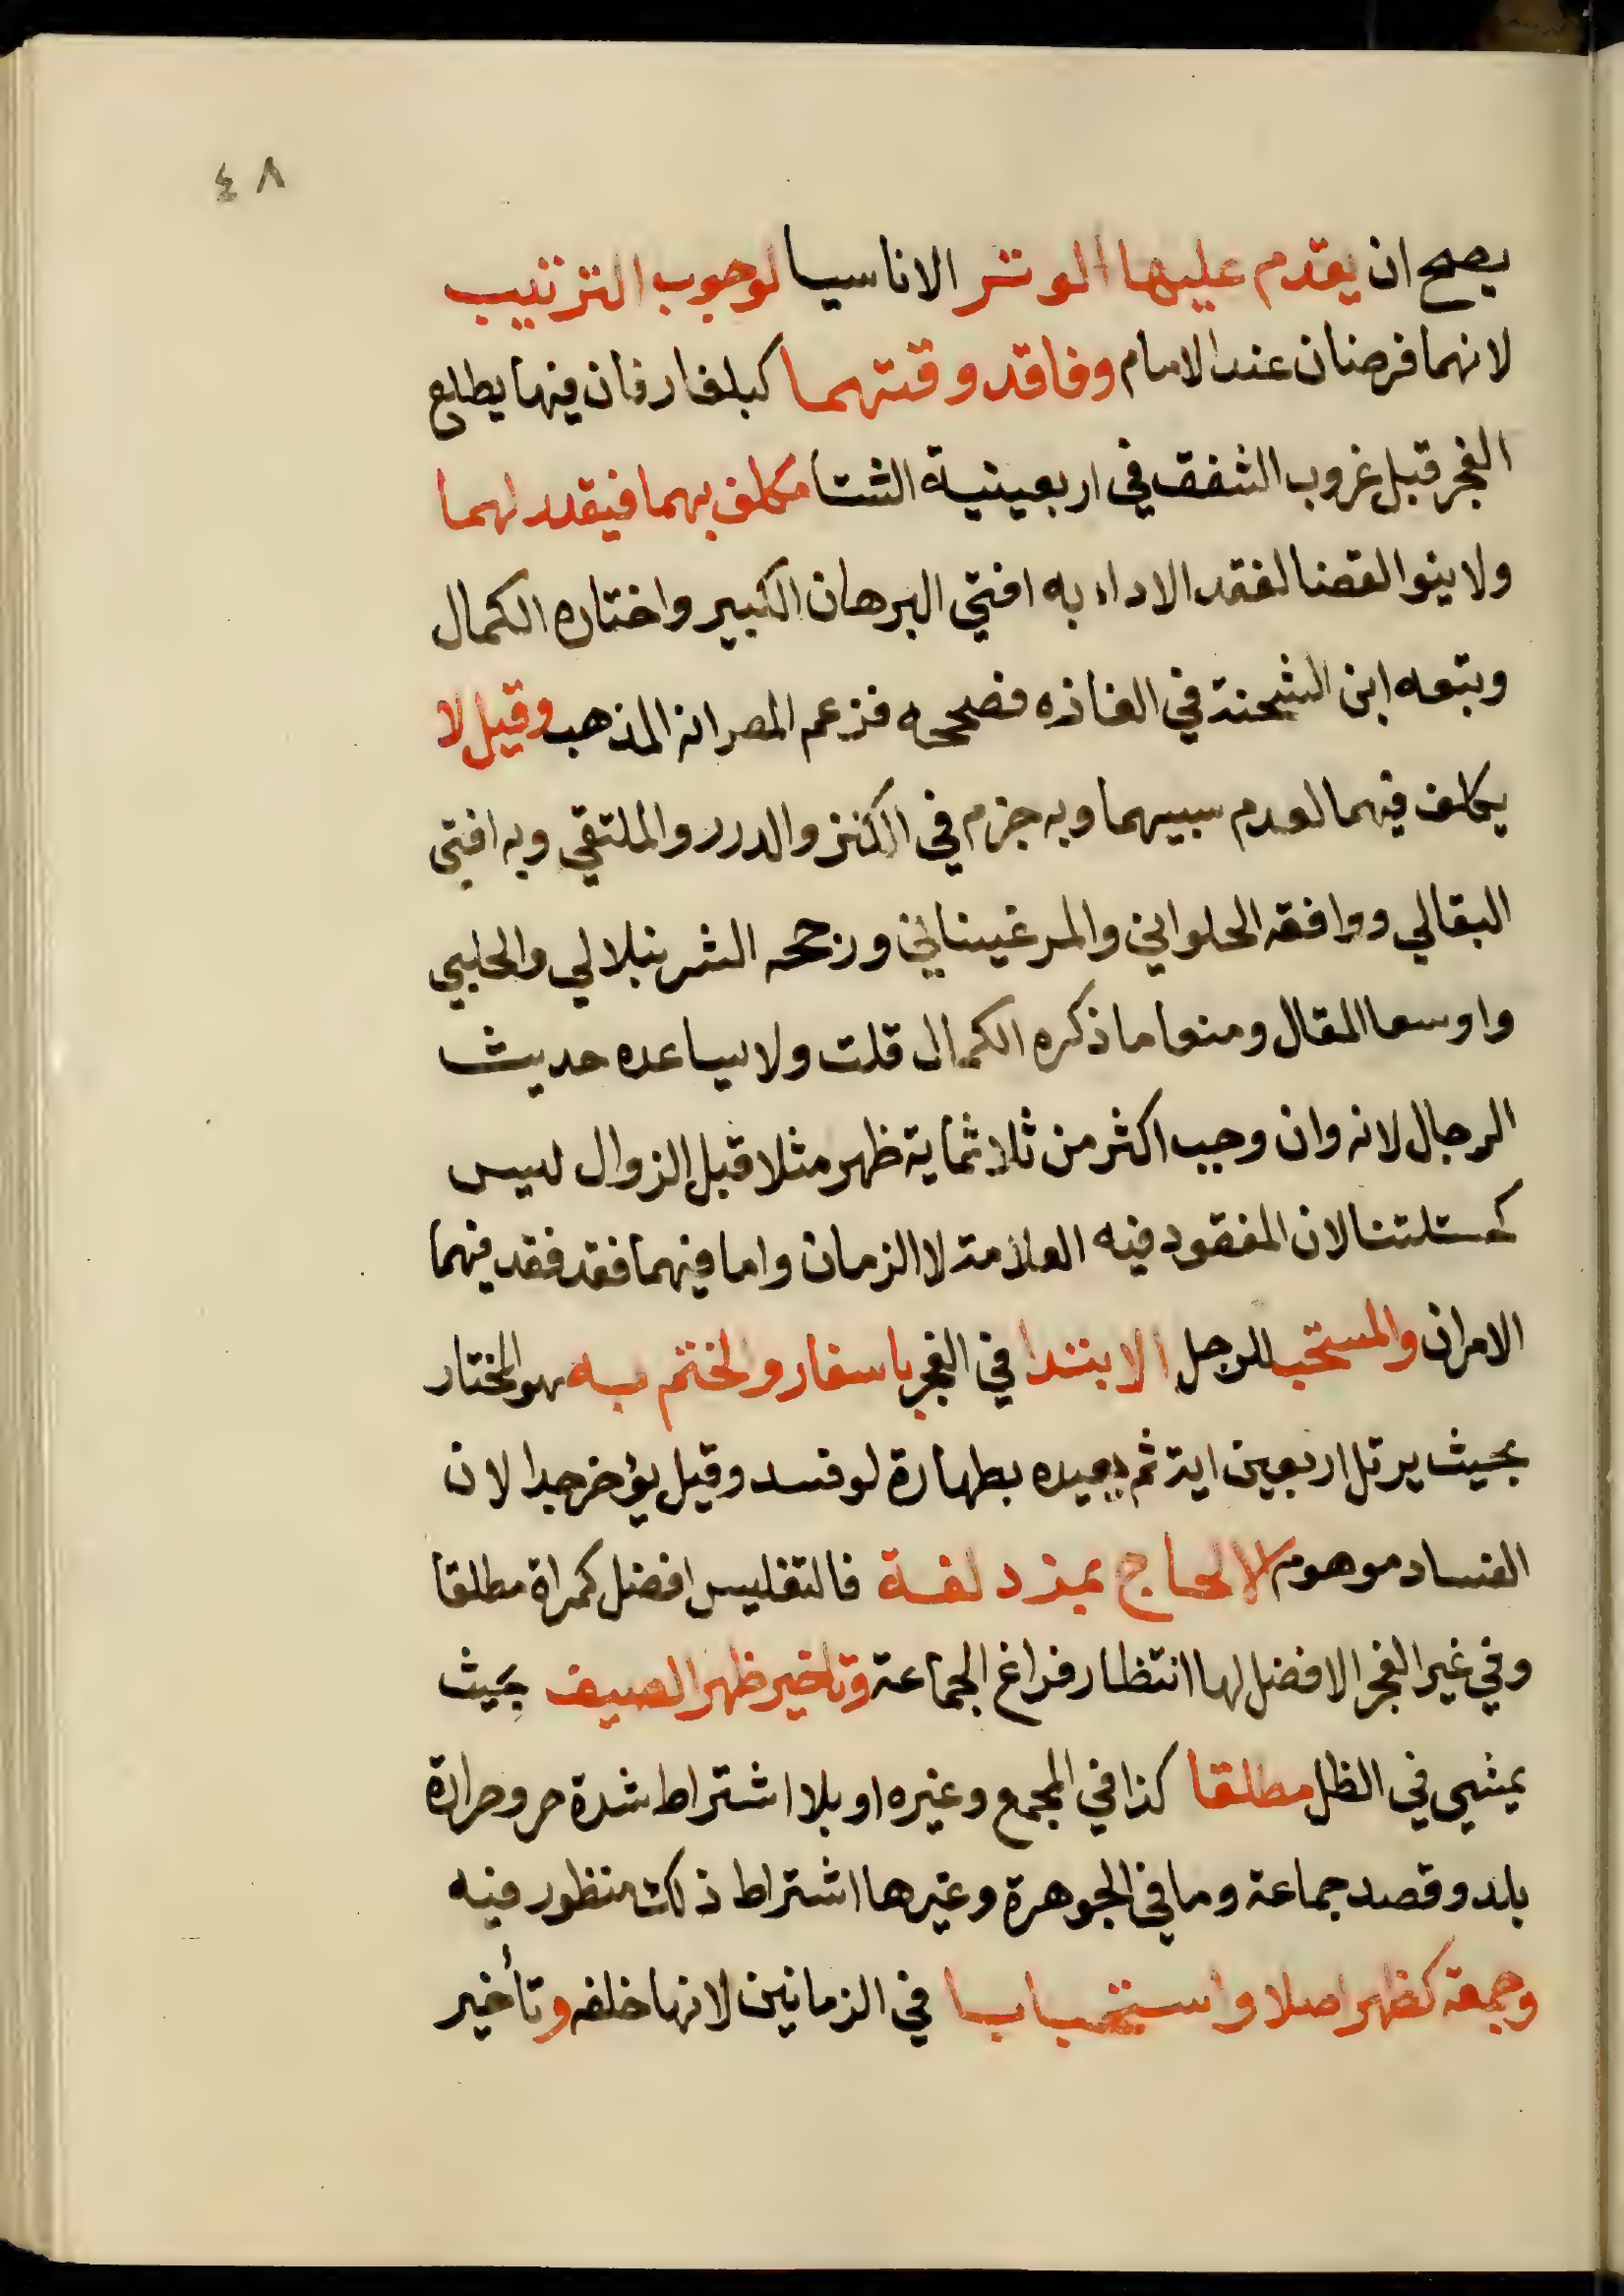 ٤٨
يصح ان يقدم عليها الوتر الا ناسيا لوجوب الترتيب
لانهما فرضان عند الامام وفاقد وقتهما كبلغار فان فيها يطلع
الفجر قبل غروب الشفق في اربعينية الشتا مكلف بهما فيقدر لهما
ولا ينوا القضا لفقد الاداء به افتى البرهان الكبير واختاره الكمال
وتبعه ابن الشحنة في الغازه فصححه فزعم المص انه المذهب وقيل لا
يكلف فيهما لعدم سببهما وبه جزم في الكنز والدرر والملتقى وبه افتى
البقالي ووافقه الحلواني والمرغيناني ورجحه الشرنبلالي والحلبي
واوسعا المقال ومنعا ما ذكره الكمال قلت ولا يساعده حديث
الرجال لانه وان وجب اكثر من ثلاثماية ظهر مثلا قبل الزوال ليس
كمسئلتنا لان المفقود فيه العلامة لا الزمان واما فيهما فقد فقد فيهما
الامران والمستحب للرجل الابتدا في الفجر باسفار والختم به هو المختار
بحيث يرتل اربعين اية ثم يعيده بطهارة لو فسد وقيل يؤخر جدا لان
الفساد موهوم الا لحاج بمزدلفة فالتغليس افضل كمراة مطلقا
وفي غير الفجر الافضل لها انتظار فراغ الجماعة وتاخير ظهر الصيف بحيث
يمشي في الظل مطلقا كذا في المجمع وغيره او بلا اشتراط شدة حر وحرارة
بلد وقصد جماعة وما في الجوهرة وغيرها اشتراط ذلك منظور فيه
وجمعة كظهر اصلا واستحبابا في الزمانين لانها خلفه وتأخير